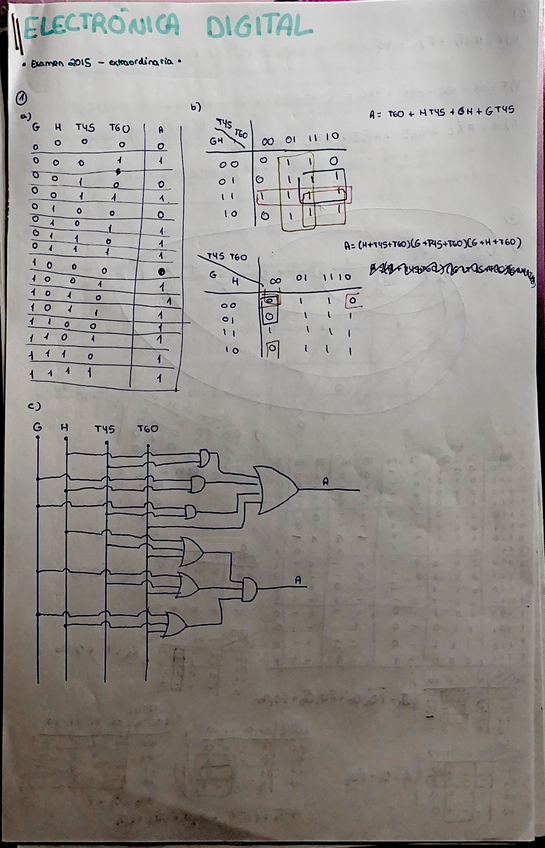 ELECTRÓNICA DIGITAL
• Examen 2015 - extraordinaria •
①
a)
G H T45 T60 A
0 0 0 0 0
0 0 0 1 1
0 0 1 0 0
0 0 1 1 1
0 1 0 0 0
0 1 0 1 1
0 1 1 1
1 0 0 0
1 0 0 1
1 0 1 0 1
1 0 1 1
1 1 0 0 1
1 1 0 1
1 1 1 0 1
1 1 1 1
b)
A = T60 + H T45 + GH + G T45
T45 T60
GH 00 01 11 10
00 0 1 1 0
01 0 1 1 1
11 1 1 1 1
10 0 1 1 1
A = (H+T45+T60)(G+T45+T60)(G+H+T60)
T45 T60
G H 00 01 11 10
00 0 1 1 0
01 0 1 1 1
11 1 1 1 1
10 0 1 1 1
c)
G H T45 T60
A
A